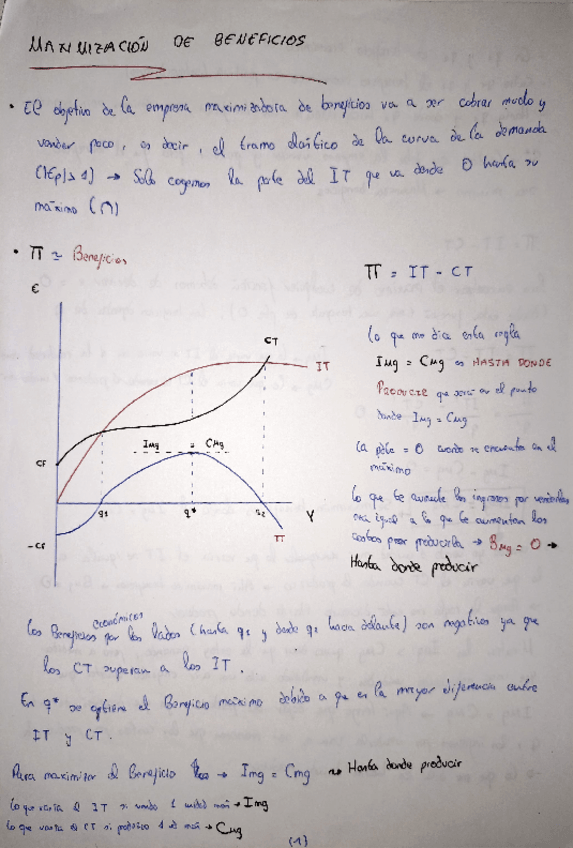 MAXIMIZACIÓN DE BENEFICIOS
• El objetivo de la empresa maximizadora de beneficios va a ser cobrar mucho y
vender poco, es decir, el tramo elástico de la curva de la demanda
(|Ep|>1) → Solo cogemos la parte del IT que va desde 0 hasta su
máximo (∩)
• π ≃ Beneficios
π = IT - CT
€
CT
IT
IMg = CMg
CF
q1
q*
q2
Y
-CF
π
Lo que me dice esta regla
IMg = CMg es HASTA DONDE
PRODUCIR que será en el punto
donde IMg = CMg
La pdte = 0 cuando se encuentra en el
máximo
Lo que te aumente los ingresos por venderlas
será igual a lo que te aumentan los
costos por producirla → BMg = 0 →
Hasta donde producir
Los Beneficios económicos por los lados (hasta q1 y desde q2 hacia delante) son negativos ya que
los CT superan a los IT.
En q* se obtiene el Beneficio máximo debido a que es la mayor diferencia entre
IT y CT.
Para maximizar el Beneficio → Img = Cmg → Hasta donde producir
Lo que varía el IT si vendo 1 unidad más → Img
Lo que varía el CT si produzco 1 ud más → CMg
(1)